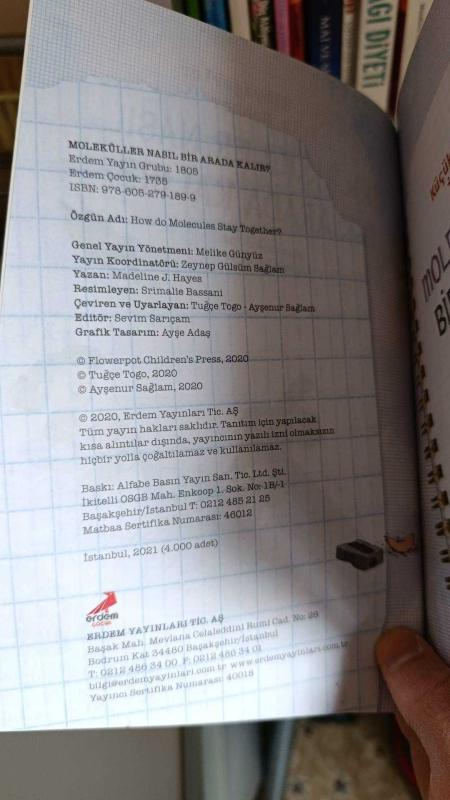 MOLEKÜLLER NASIL BİR ARADA KALIR?
Erdem Yayın Grubu: 1805
Erdem Çocuk: 1735
ISBN: 978-605-279-189-9
Özgün Adı: How do Molecules Stay Together?
Genel Yayın Yönetmeni: Melike Günyüz
Yayın Koordinatörü: Zeynep Gülsüm Sağlam
Yazan: Madeline J. Hayes
Resimleyen: Srimalie Bassani
Çeviren ve Uyarlayan: Tuğçe Togo - Ayşenur Sağlam
Editör: Sevim Sarıçam
Grafik Tasarım: Ayşe Adaş
© Flowerpot Children's Press, 2020
© Tuğçe Togo, 2020
© Ayşenur Sağlam, 2020
© 2020, Erdem Yayınları Tic. AŞ
Tüm yayın hakları saklıdır. Tanıtım için yapılacak
kısa alıntılar dışında, yayıncının yazılı izni olmaksızın
hiçbir yolla çoğaltılamaz ve kullanılamaz.
Baskı: Alfabe Basın Yayın San. Tic. Ltd. Şti.
İkitelli OSGB Mah. Enkoop 1. Sok. No: 1B/-1
Başakşehir/İstanbul T: 0212 485 21 25
Matbaa Sertifika Numarası: 46012
İstanbul, 2021 (4.000 adet)
erdem
çocuk
ERDEM YAYINLARI TİC. AŞ
Başak Mah. Mevlana Celaleddini Rumi Cad. No: 28
Bodrum Kat 34480 Başakşehir/İstanbul
T: 0212 486 34 00 F: 0212 486 34 01
bilgi@erdemyayinlari.com.tr www.erdemyayinlari.com.tr
Yayıncı Sertifika Numarası: 40015
DİYETİ
Küçük
MOLE
Bİ